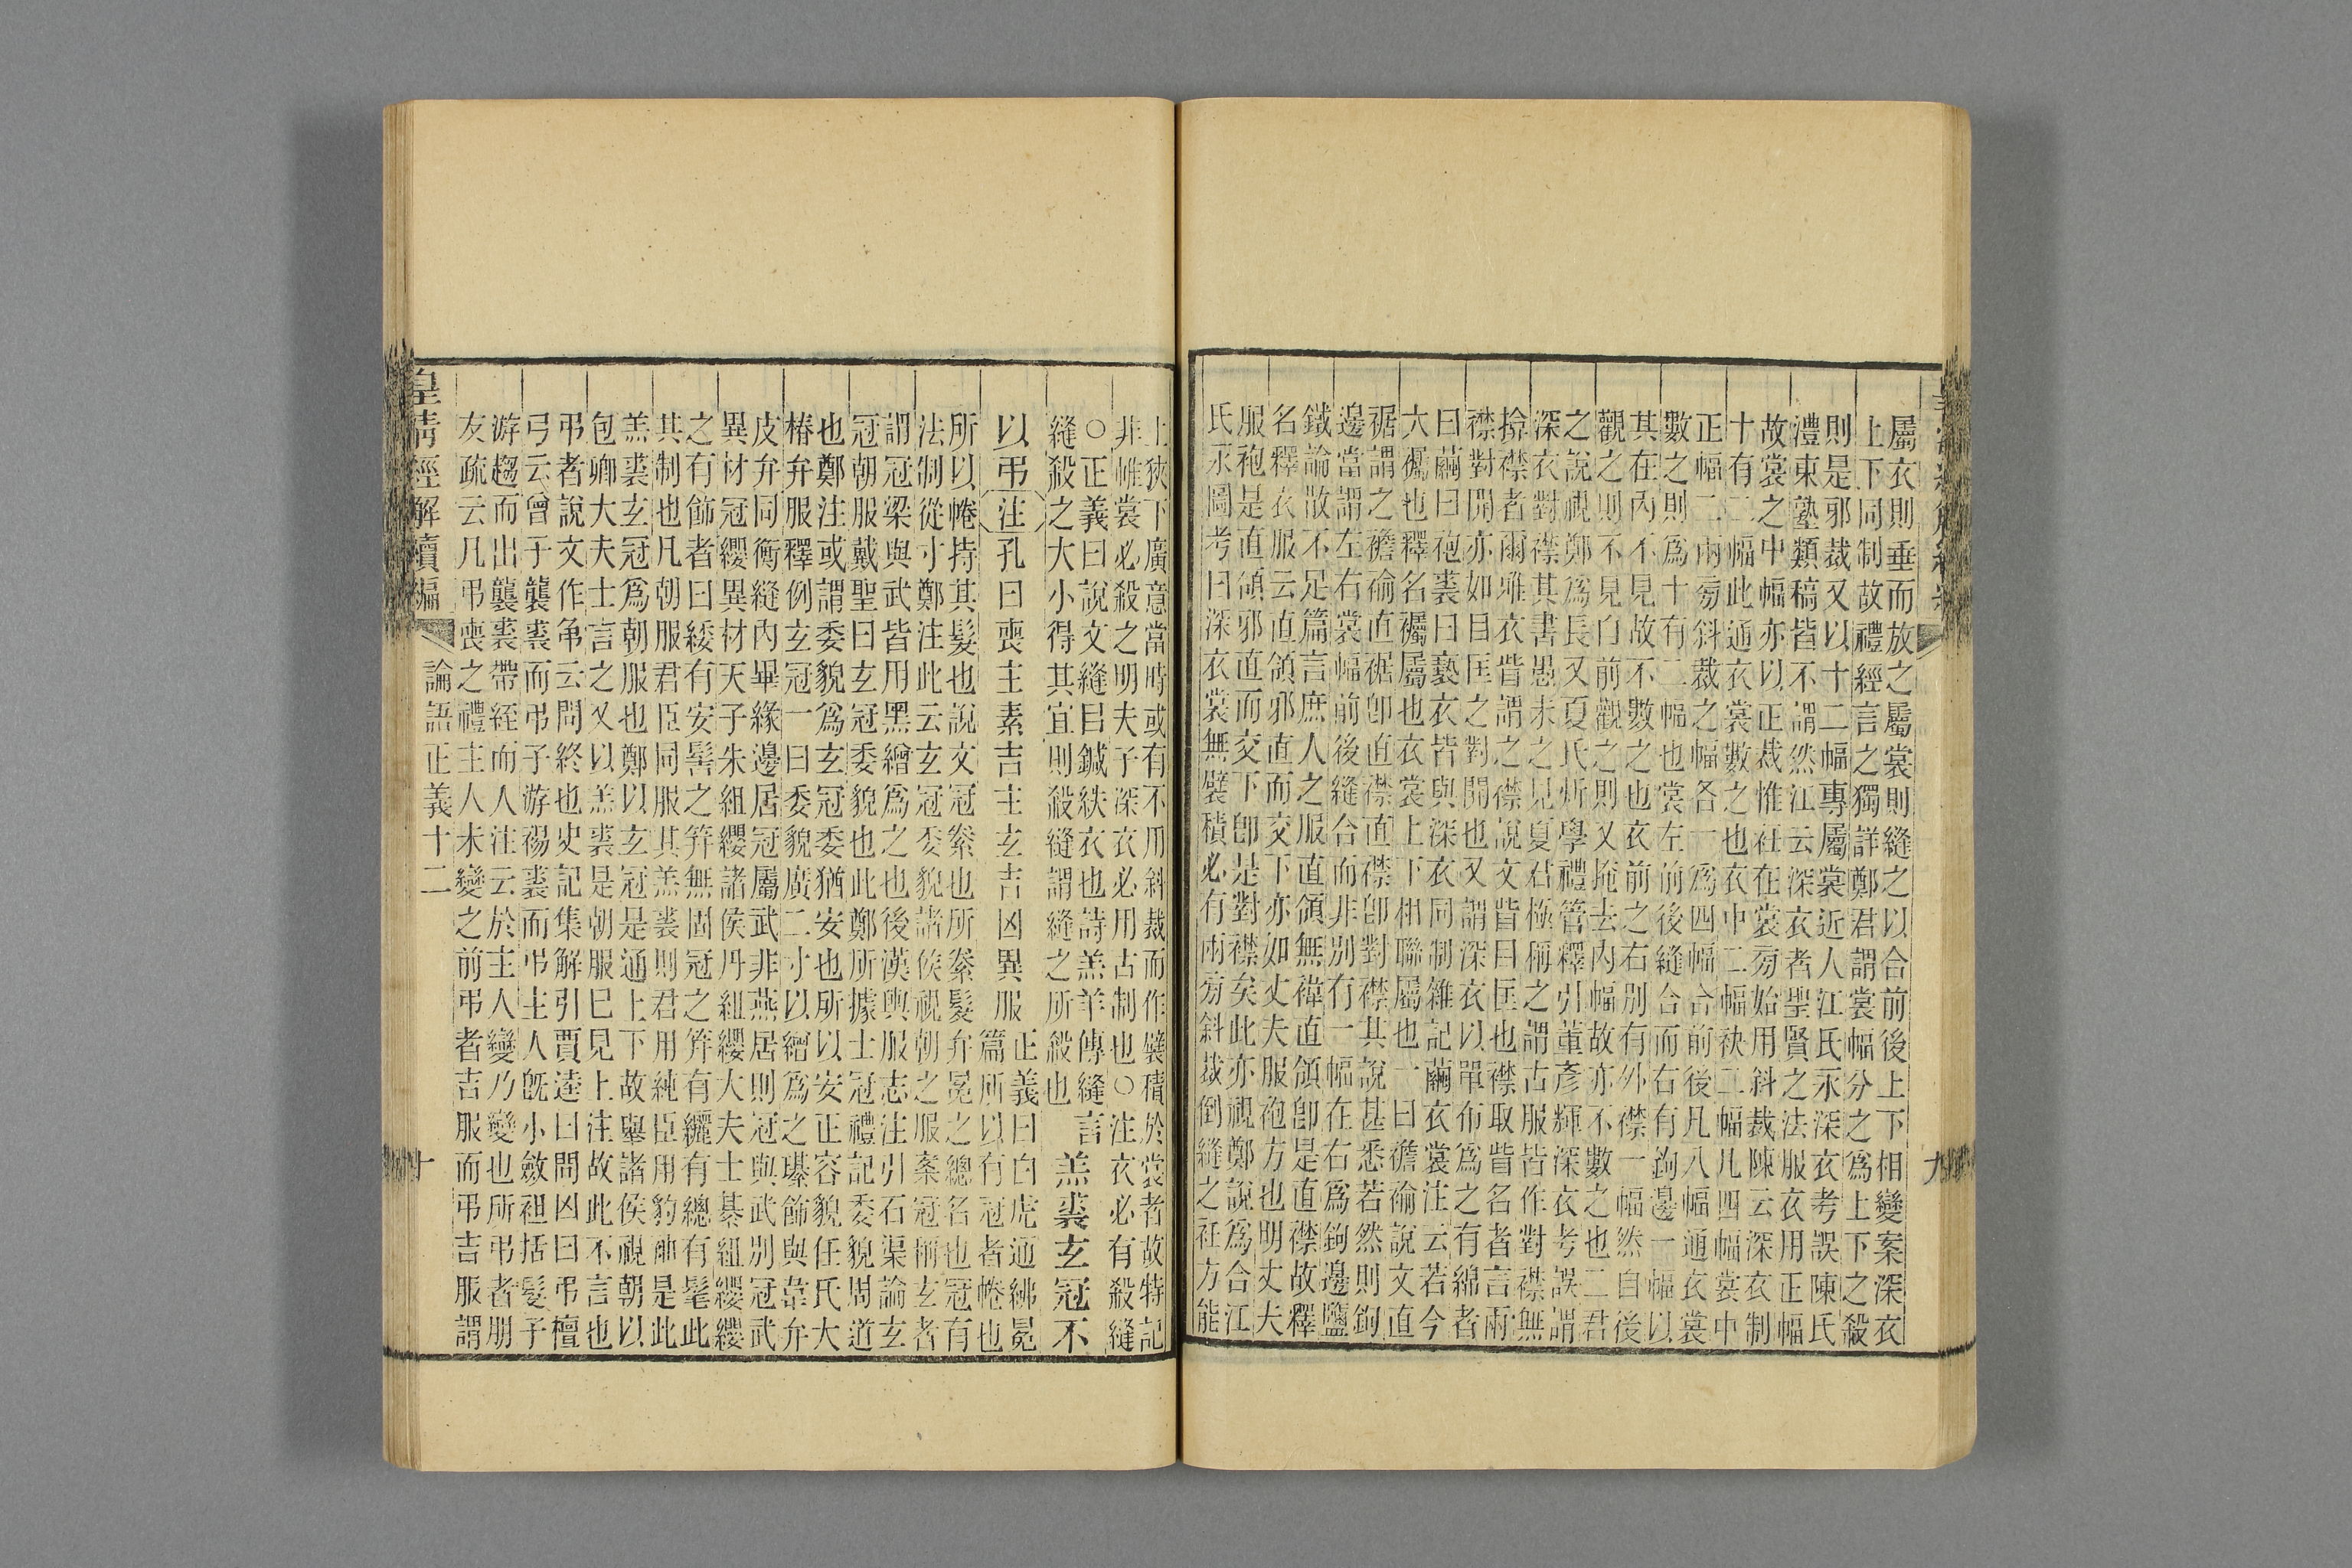 屬衣則垂而放之屬裳則縫之以合前後上下相變案深衣
上下同制故禮經言之獨詳鄭君謂裳幅分之爲上下之殺
則是邪裁又以十二幅專屬裳近人江氏永深衣考誤陳氏
澧東塾類稿皆不謂然江云深衣者聖賢之法服衣用正幅
故裳之中幅亦以正裁惟衽在裳旁始用斜裁陳云深衣制
十有二幅此通衣裳數之也衣中二幅袂二幅凡四幅裳中
正幅二兩旁斜裁之幅各一爲四幅合前後凡八幅通衣裳
數之則爲十有二幅也裳左前後縫合而右有鉤邊一幅以
其在內不見故不數之也衣前之右別有外襟一幅然自後
觀之則不見自前觀之則又掩去內幅故亦不數之也二君
之說視鄭爲長又夏氏炘學禮管釋引董彥輝深衣考誤謂
深衣對襟其書愚未之見夏君極稱之謂古服皆作對襟無
捦襟者爾雅衣眥謂之襟說文眥目匡也襟取眥名者言兩
襟對開亦如目匡之對開也又謂深衣以單布爲之有綿者
曰繭曰袍裘曰褻衣皆與深衣同制雜記繭衣裳注云若今
大襡也釋名襡屬也衣裳上下相聯屬也一曰襜褕說文直
裾謂之襜褕直裾卽直襟直襟卽對襟其說甚悉若然則鉤
邊當謂左右裳幅前後縫合而非別有一幅在右爲鉤邊鹽
鐵論散不足篇言庶人之服直領無褘直領卽是直襟故釋
名釋衣服云直領邪直而交下亦如丈夫服袍方也明丈夫
服袍是直領邪直而交下卽是對襟矣此亦視鄭說爲合江
氏永圖考曰深衣裳無襞積必有兩旁斜裁倒縫之衽方能
皇清經解續編
九
上狹下廣意當時或有不用斜裁而作襞積於裳者故特記
非帷裳必殺之明夫子深衣必用古制也○注衣必有殺縫
○正義曰說文縫目鍼紩衣也詩羔羊傳縫言
縫殺之大小得其宜則殺縫謂縫之所殺也
羔裘玄冠不
以弔注孔曰喪主素吉主玄吉凶異服
正義曰白虎通紼冕
篇所以有冠者帣也
所以帣持其髮也說文冠絭也所絭髮弁冕之總名也冠有
法制從寸鄭注此云玄冠委貌諸侯視朝之服案冠稱玄者
謂冠梁與武皆用黑繒爲之也後漢輿服志注引石渠論玄
冠朝服戴聖曰玄冠委貌也此鄭所據士冠禮記委貌周道
也鄭注或謂委貌爲玄冠委猶安也所以安正容貌任氏大
椿弁服釋例玄冠一曰委貌廣二寸以繒爲之瑧飾與韋弁
皮弁同衡縫內畢緣邊居冠屬武非燕居則冠與武別冠武
異材冠纓異材天子朱組纓諸侯丹組纓大夫士綦組纓纓
之有飾者曰緌有安髻之笄無固冠之笄有纚有總有髦此
其制也凡朝服君臣同服其羔裘則君用純臣用豹袖是此
羔裘玄冠爲朝服也鄭以玄冠是通上下故舉諸侯視朝以
包卿大夫士言之又以羔裘是朝服已見上注故此不言也
弔者說文作弔云問終也史記集解引賈逵曰問凶曰弔檀
弓云曾子襲裘而弔子游裼裘而弔主人旣小斂袒括髮子
游趨而出襲裘帶絰而入注云於主人變乃變也所弔者朋
友疏云凡弔喪之禮主人未變之前弔者吉服而弔吉服謂
皇清經解續編
論語正義十二
十